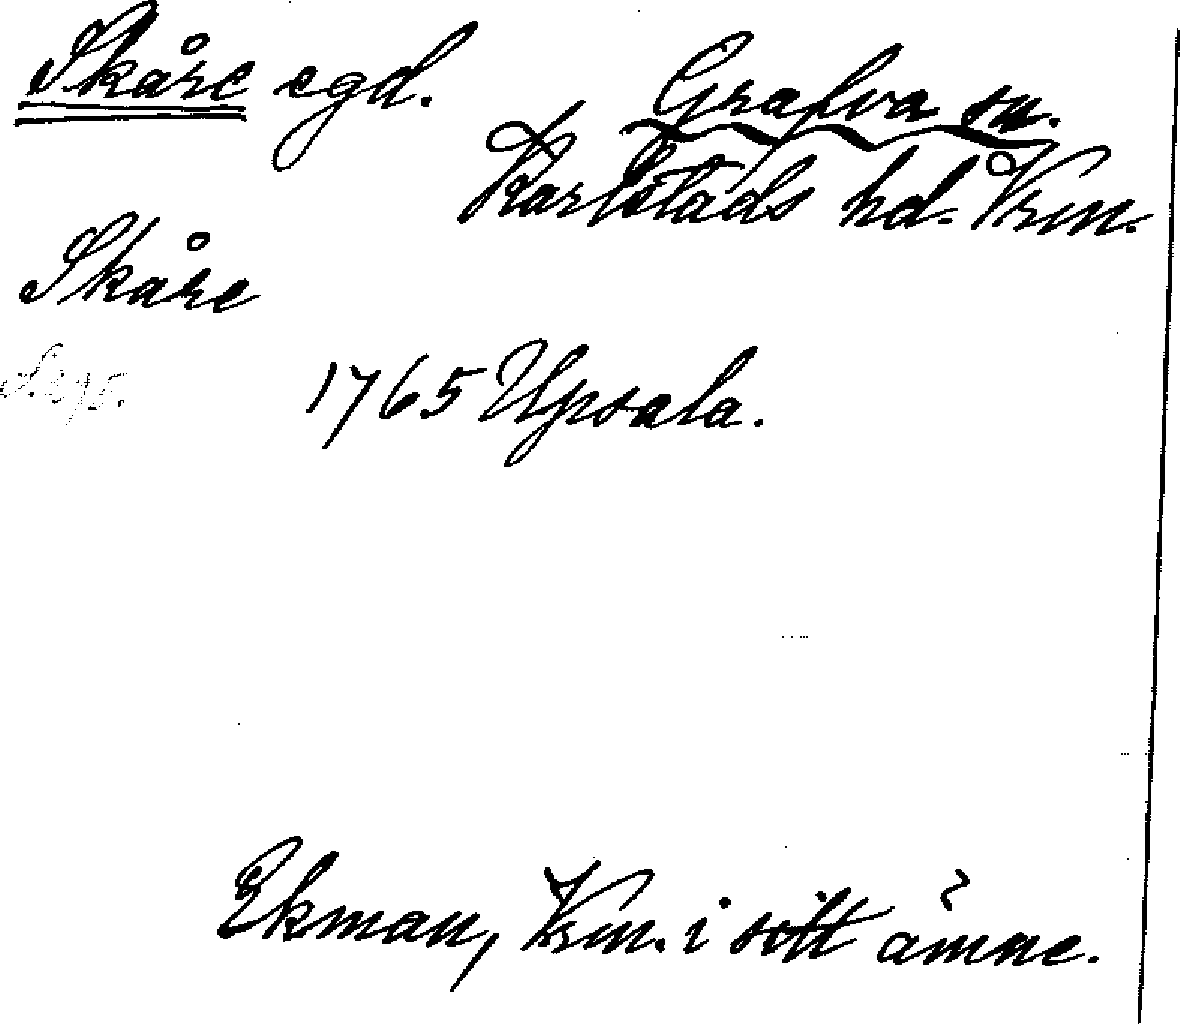 Skåre egd.
Grafva sn.
Karlstads hd. Vrm.
Skåre
1765 Upsala.
Ekman, Vrm. i sitt ämne.